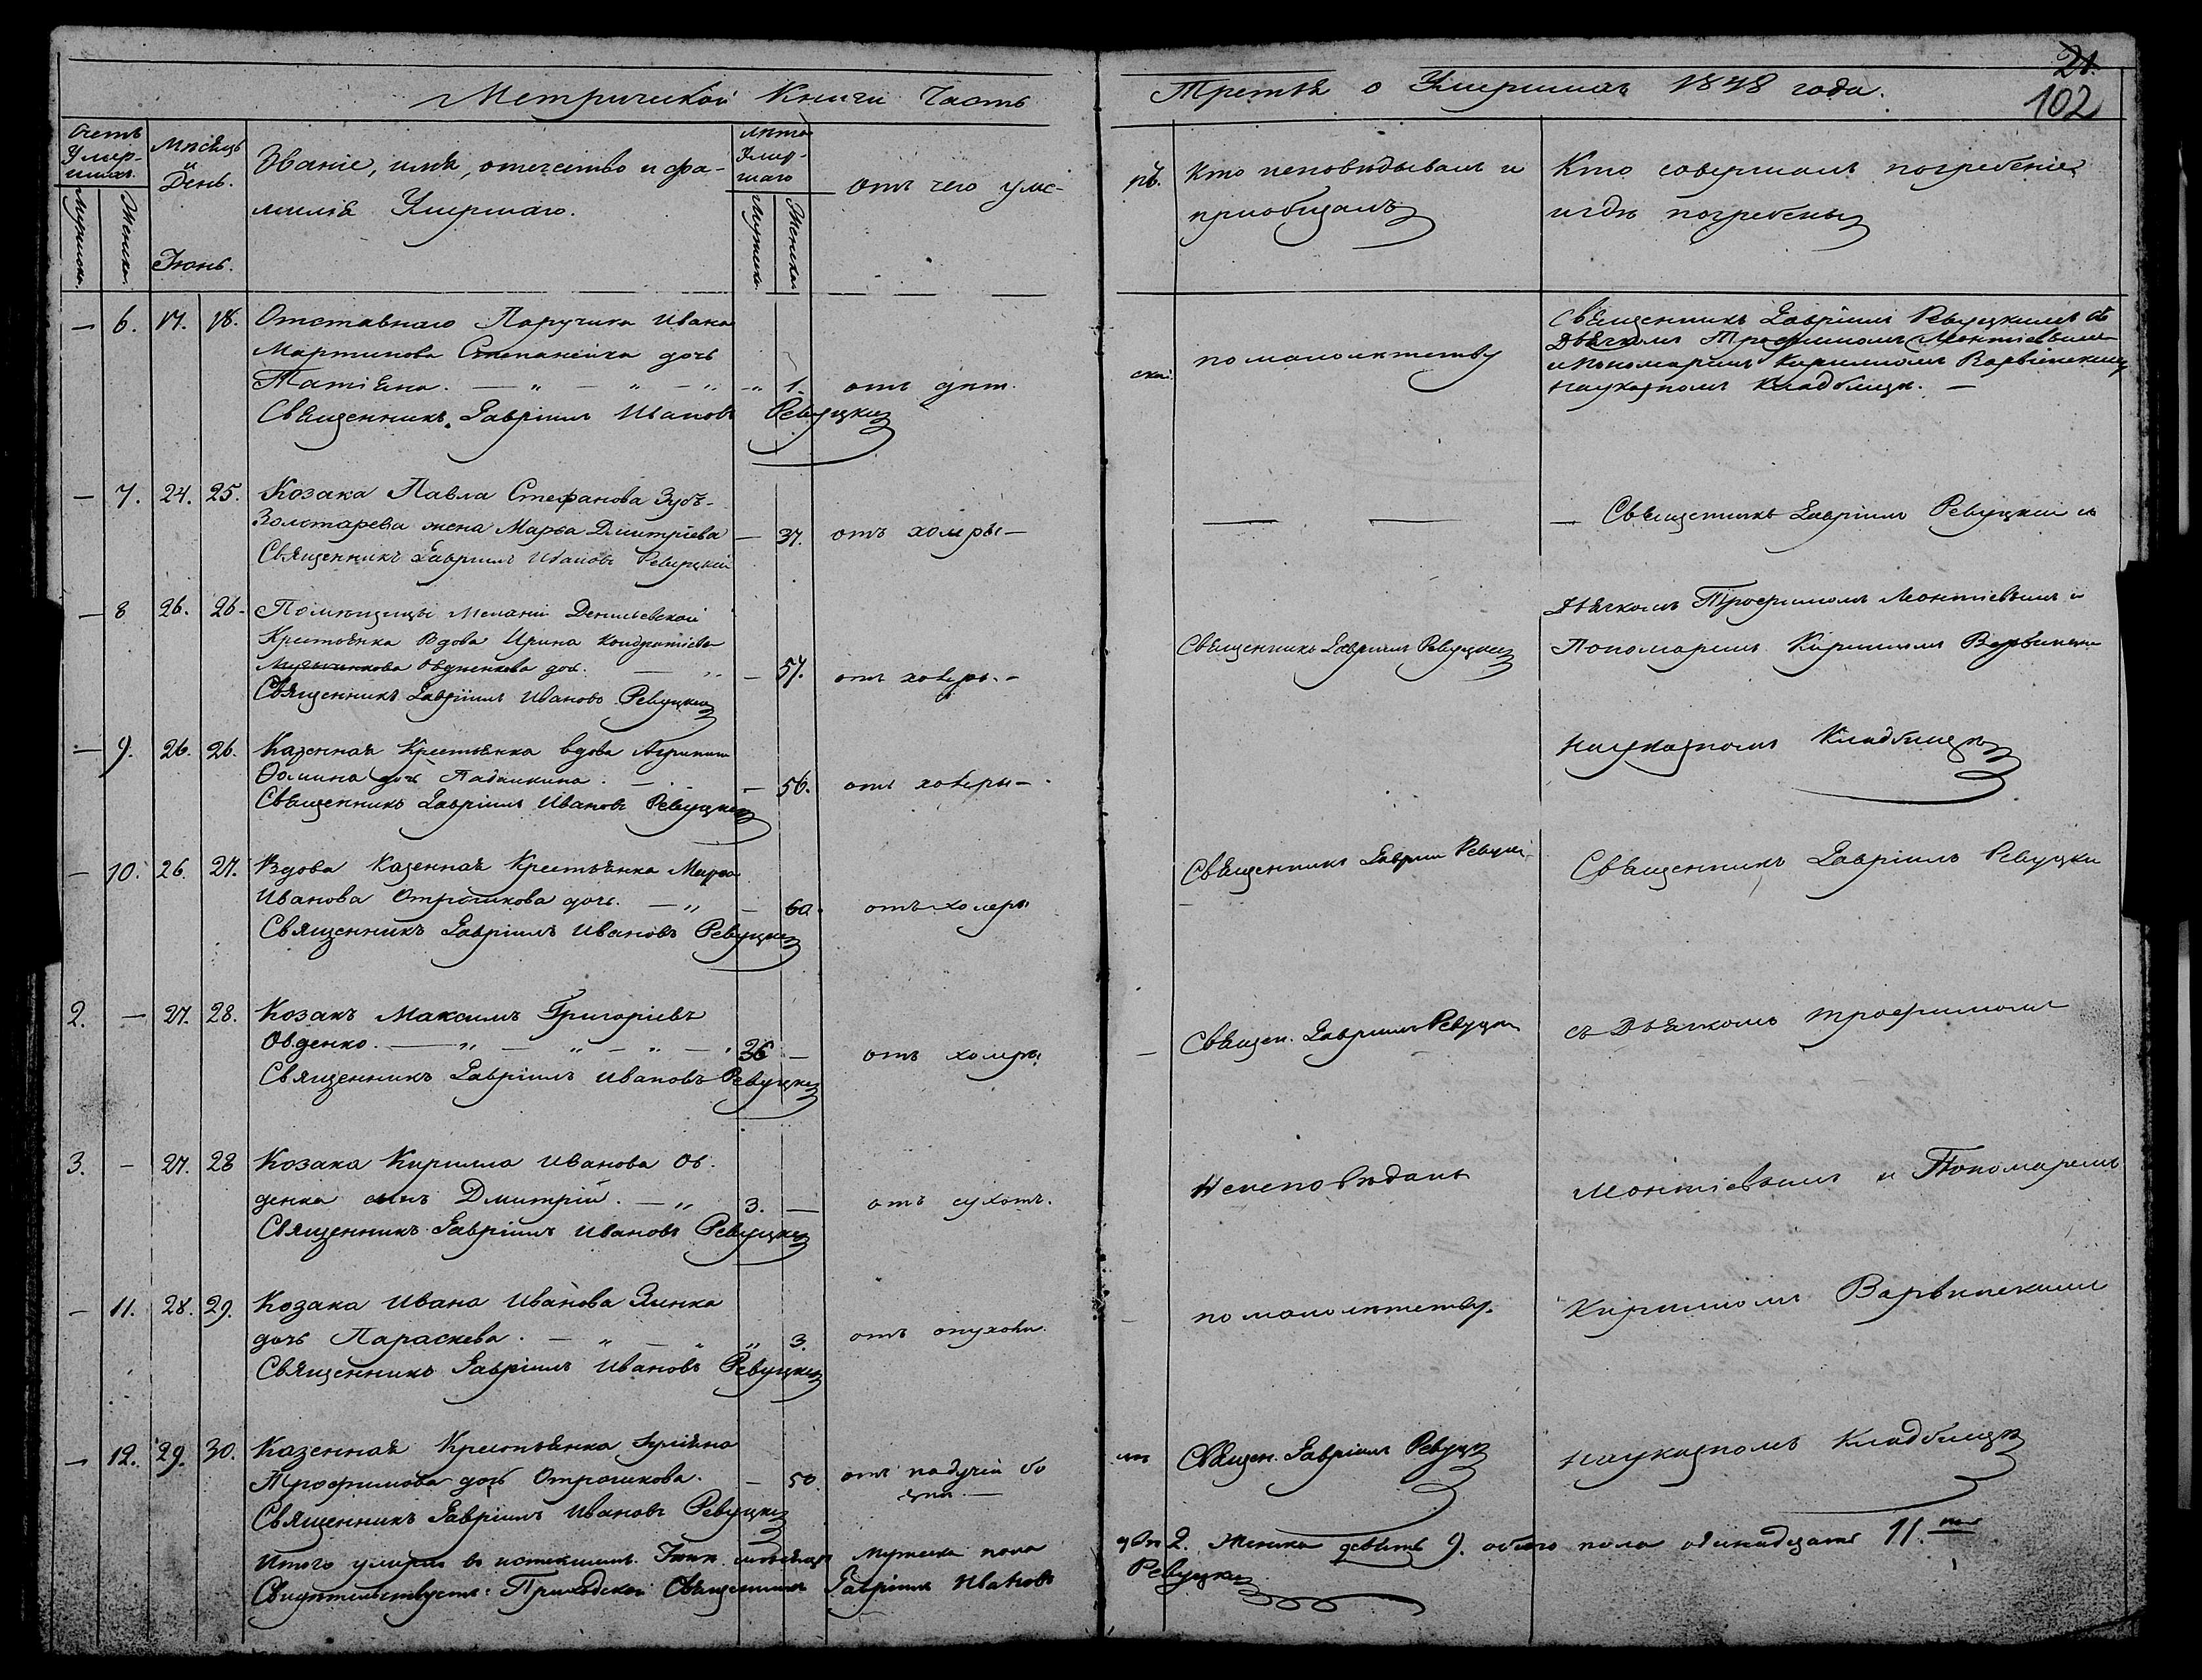 Метрической Книги Часть
Счетъ Умершихъ.
Мужеска.
Женска.
Мѣсяцъ и День.
Іюнь.
Званіе, имя, отечество и фамилія Умершаго.
Лѣта Умершаго
Мужеска.
Женска
отъ чего уме-
— 6. 17. 18. Отставнаго Паручика Ивана
Мартинова Степанейка дочь
Татіяна. — „ — „ — „ 1. отъ дѣт.
Священникъ Гавріилъ Ивановъ Ревуцкій
— 7. 24. 25. Козака Павла Стефанова Зубъ-
Золотарева жена Марѳа Димитріева — 37. отъ холеры —
Священникъ Гавріилъ Ивановъ Ревуцкій
— 8 26. 26. Помѣщицы Меланіи
Крестьянка Вдова Ирина Кондратіева
Овдіенкова доч. — 57. отъ холеры. —
Священникъ Гавріилъ Ивановъ Ревуцкій
— 9. 26. 26. Казенная Крестьянка вдова
Ѳомина дочь — 56. отъ холеры —
Священникъ Гавріилъ Ивановъ Ревуцкій
— 10. 26. 27. Вдова Казенная Крестьянка Марѳа
Иванова Отрошкова дочь. — „ — 60. отъ холеры
Священникъ Гавріилъ Ивановъ Ревуцкій
2. — 27. 28. Козакъ Максимъ Григоріевъ
Овденко. — „ — „ — „ — 36 — отъ холеры
Священникъ Гавріилъ Ивановъ Ревуцкій
3. — 27. 28 Козака Кирилла Иванова Ов-
денка сынъ Дмитрій. — „ 3. — отъ сухотъ.
Священникъ Гавріилъ Ивановъ Ревуцкій
— 11. 28. 29. Козака Ивана Иванова Зинка
дочь Параскева. — „ — „ „ 3. отъ опухоли.
Священникъ Гавріилъ Ивановъ Ревуцкій
— 12. 29. 30. Казенная Крестьянка Іуліяна
Трофимова дочь Отрошкова. — 50. отъ падучій бо
Священникъ Гавріилъ Ивановъ Ревуцкій
Итого умерло въ истекшемъ Іюнѣ мѣсяцѣ Мужеска пола
Свидѣтельствуетъ: Приходской Священникъ Гавріилъ Ивановъ
21.
102
Третья о Умершихъ 1848 года.
ръ.
Кто исповѣдывалъ и
приобщалъ
Кто совершалъ погребеніе
и гдѣ погребены
ской.
по малолѣтству
Священникъ Гавріилъ Ревуцкій съ
Дьячкомъ Трофимомъ Леонтіевымъ
и Пономаремъ Кирилломъ Варвинскимъ
на указномъ Кладбищѣ. —
— — — Священникъ Гавріилъ Ревуцкій съ
Дьячкомъ Трофимомъ Леонтіевымъ и
Священникъ Гавріилъ Ревуцкій
Пономаремъ Кирилломъ Варвински
на указномъ Кладбищѣ
Священникъ Гавріил Ревуцкі
Священникъ Гавріилъ Ревуцки
— Священ. Гавріилъ Ревуцки
съ Дьячкомъ Трофимомъ
Не исповѣданъ
Леонтіевымъ и Пономаремъ
по малолѣтству.
Кирилломъ Варвинскимъ
Священ. Гавріилъ Ревуцк
на указномъ Кладбищѣ
два 2. Женска девять 9. обоего пола одинадцать 11.
Ревуцкій